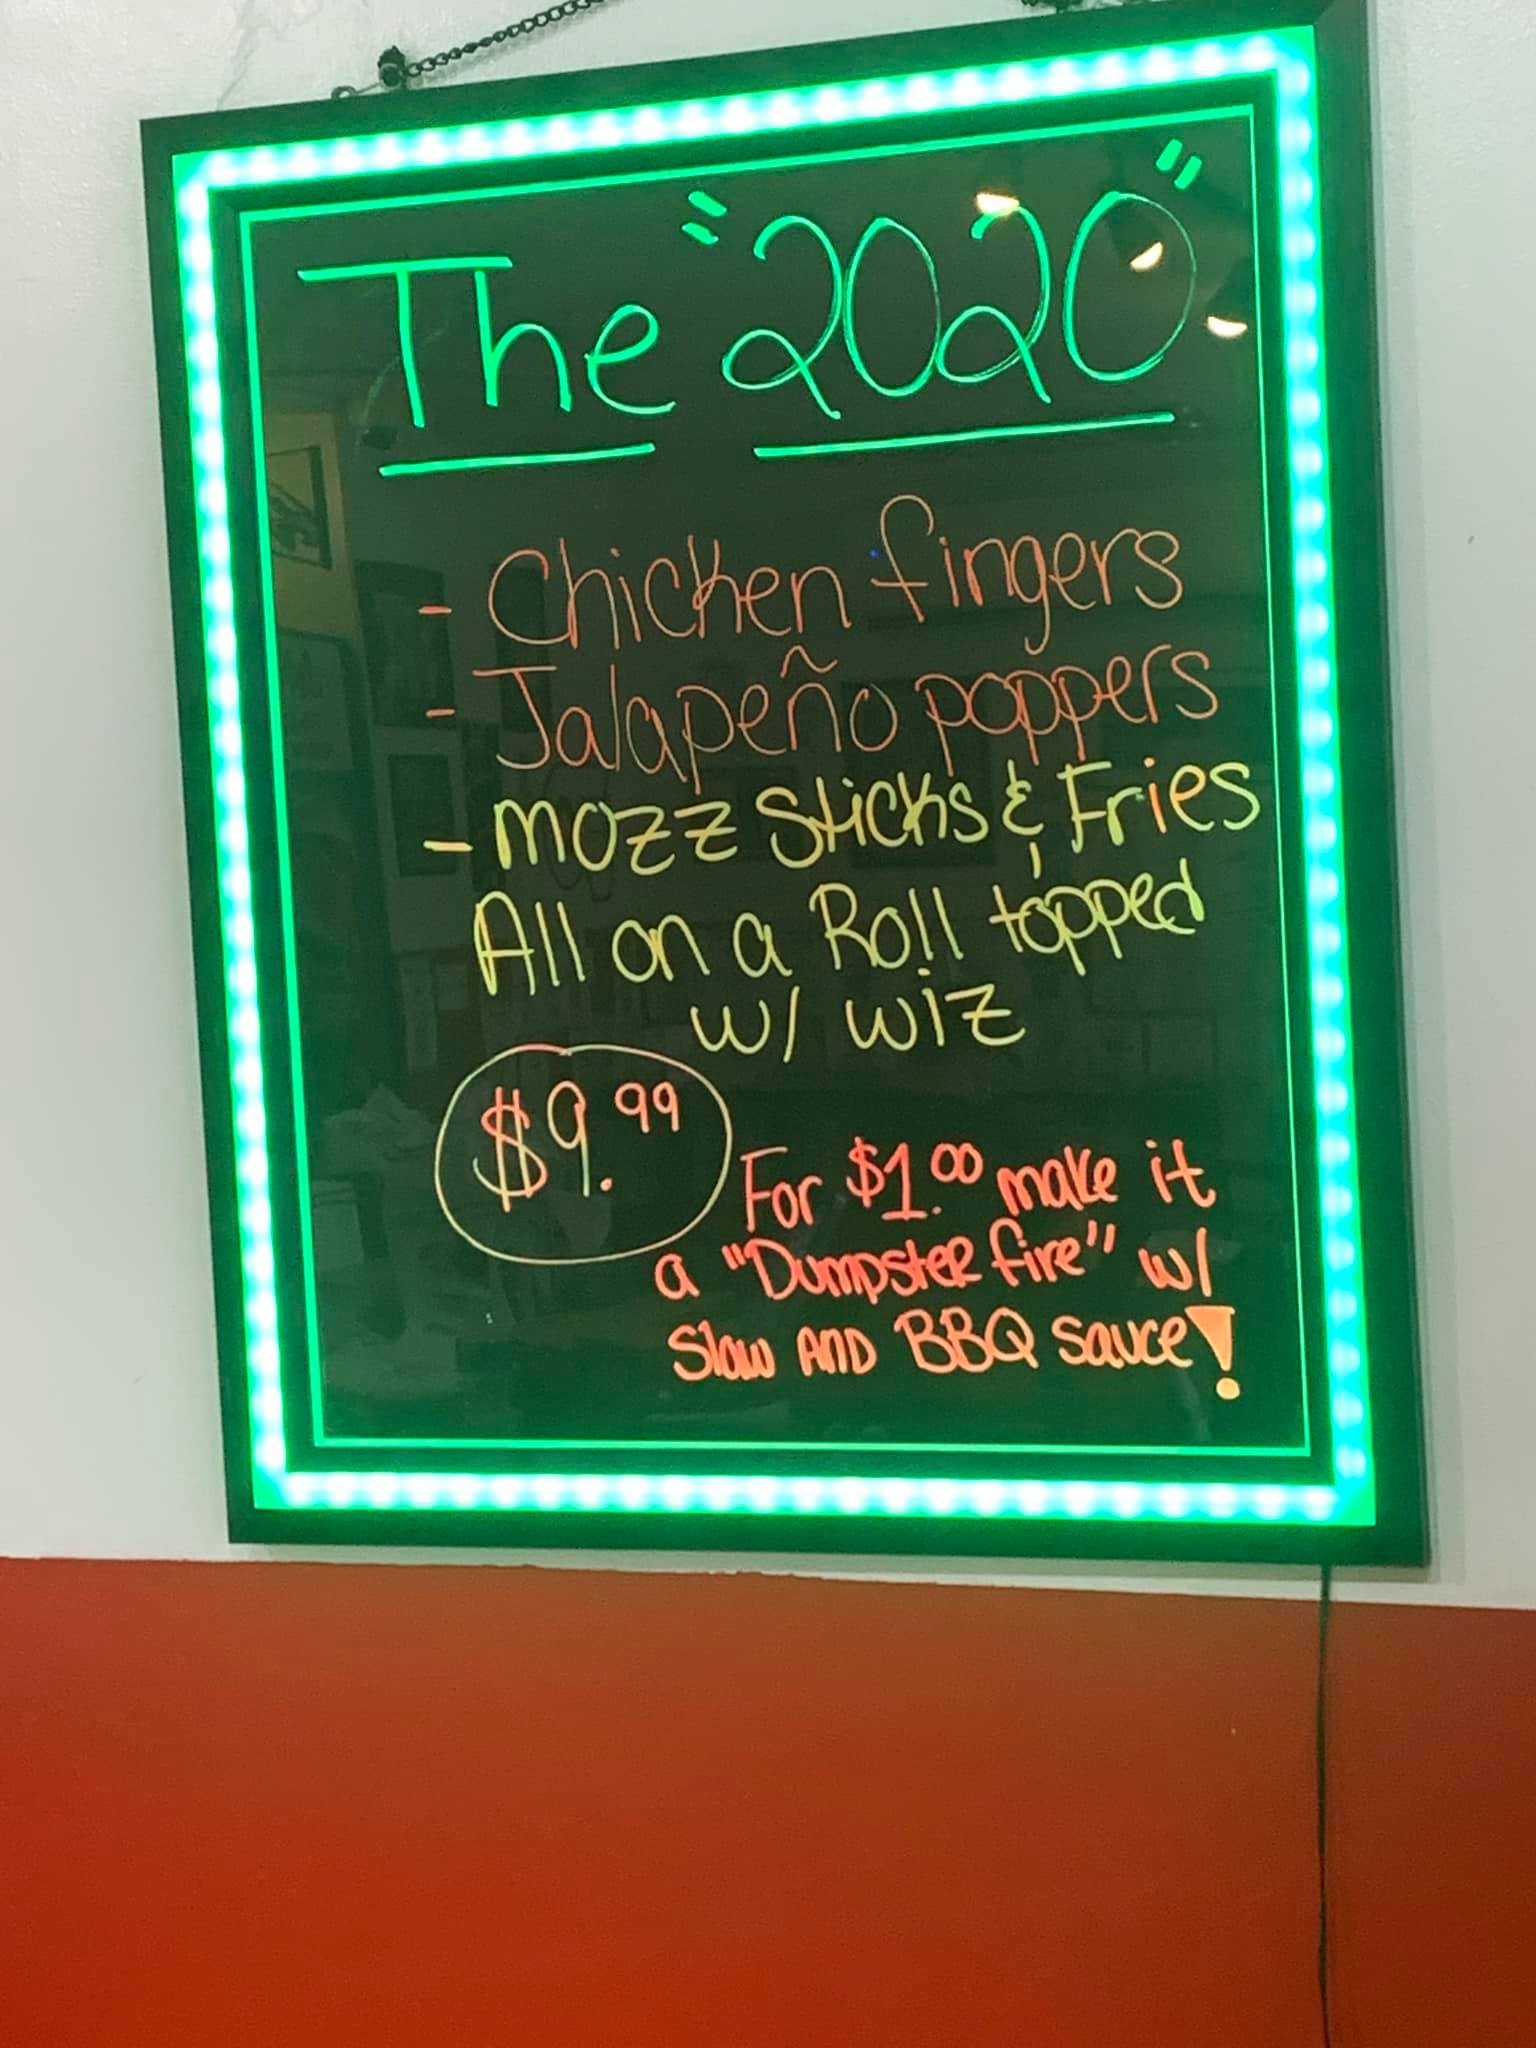 The "2020"
- Chicken fingers
- Jalapeño poppers
- mozz Sticks & Fries
All on a Roll topped
w/ wiz
$9.99
For $1.00 make it
a "Dumpster fire" w/
Slaw AND BBQ Sauce!